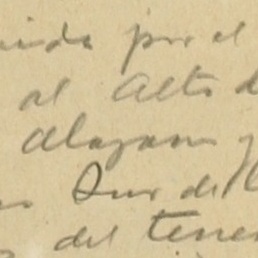 por el
al Alto d
Alazan y
Sur del
del terre